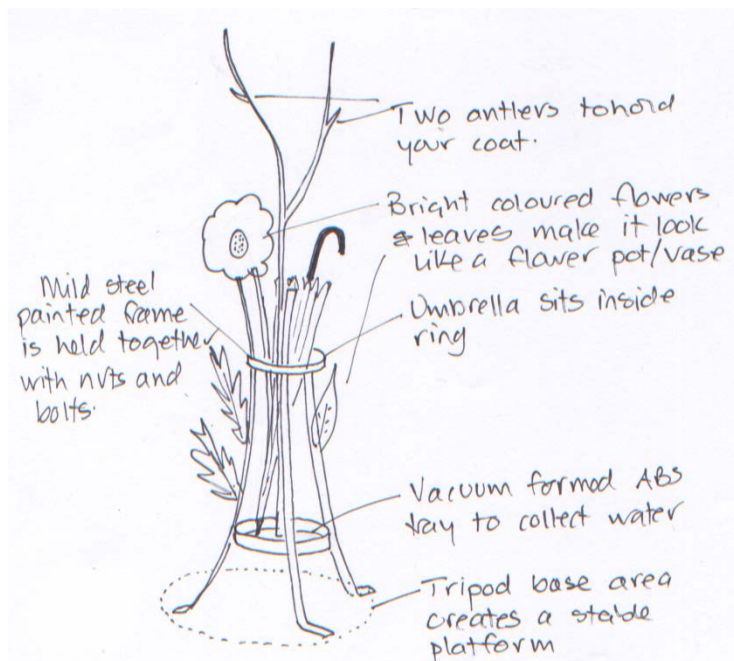 Two antlers to hold
your coat.
Bright coloured flowers
& leaves make it look
like a flower pot/vase
Mild steel
painted frame
is held together
with nuts and
bolts.
Umbrella sits inside
ring
Vacuum formed ABS
tray to collect water
Tripod base area
creates a stable
platform